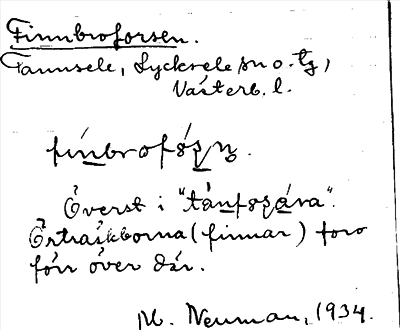 Finnbroforsen.
Tannsele, Lycksele sn o. tg,
Västerb. l.
finbrofo
Överst i "tånfsʒåva".
Örträskborna (finnar) foro
förr över där.
M. Neuman, 1934.